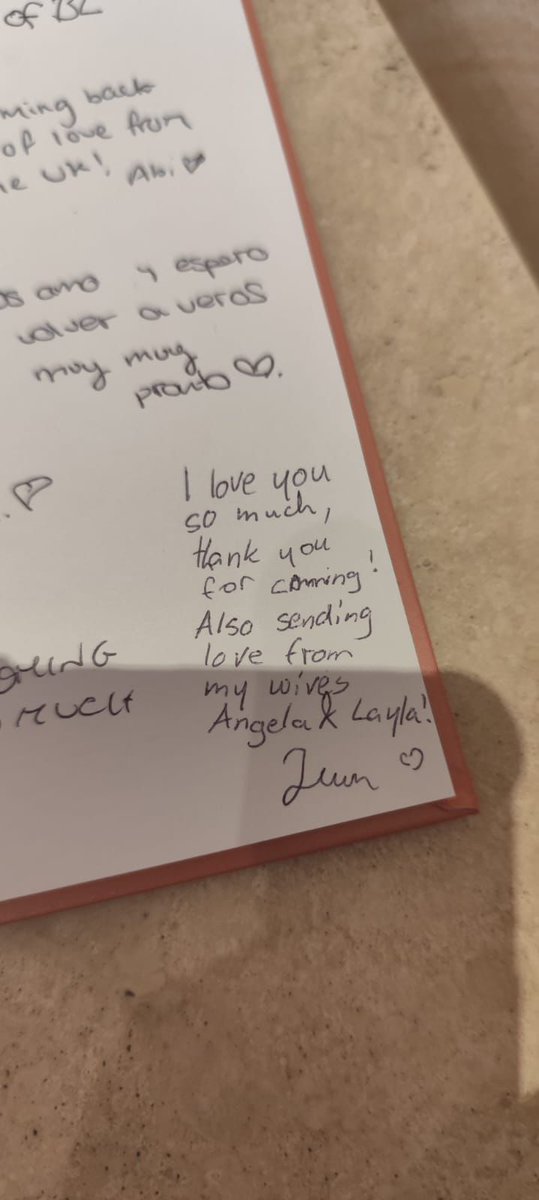 of BL
ming back
of love from
he UK! Abi
os amo y espero
volver a veros
muy muy
pronto
I love you
so much,
thank you
for comming!
Also sending
love from
my wives
Angela & Layla!
OMING
MUCH